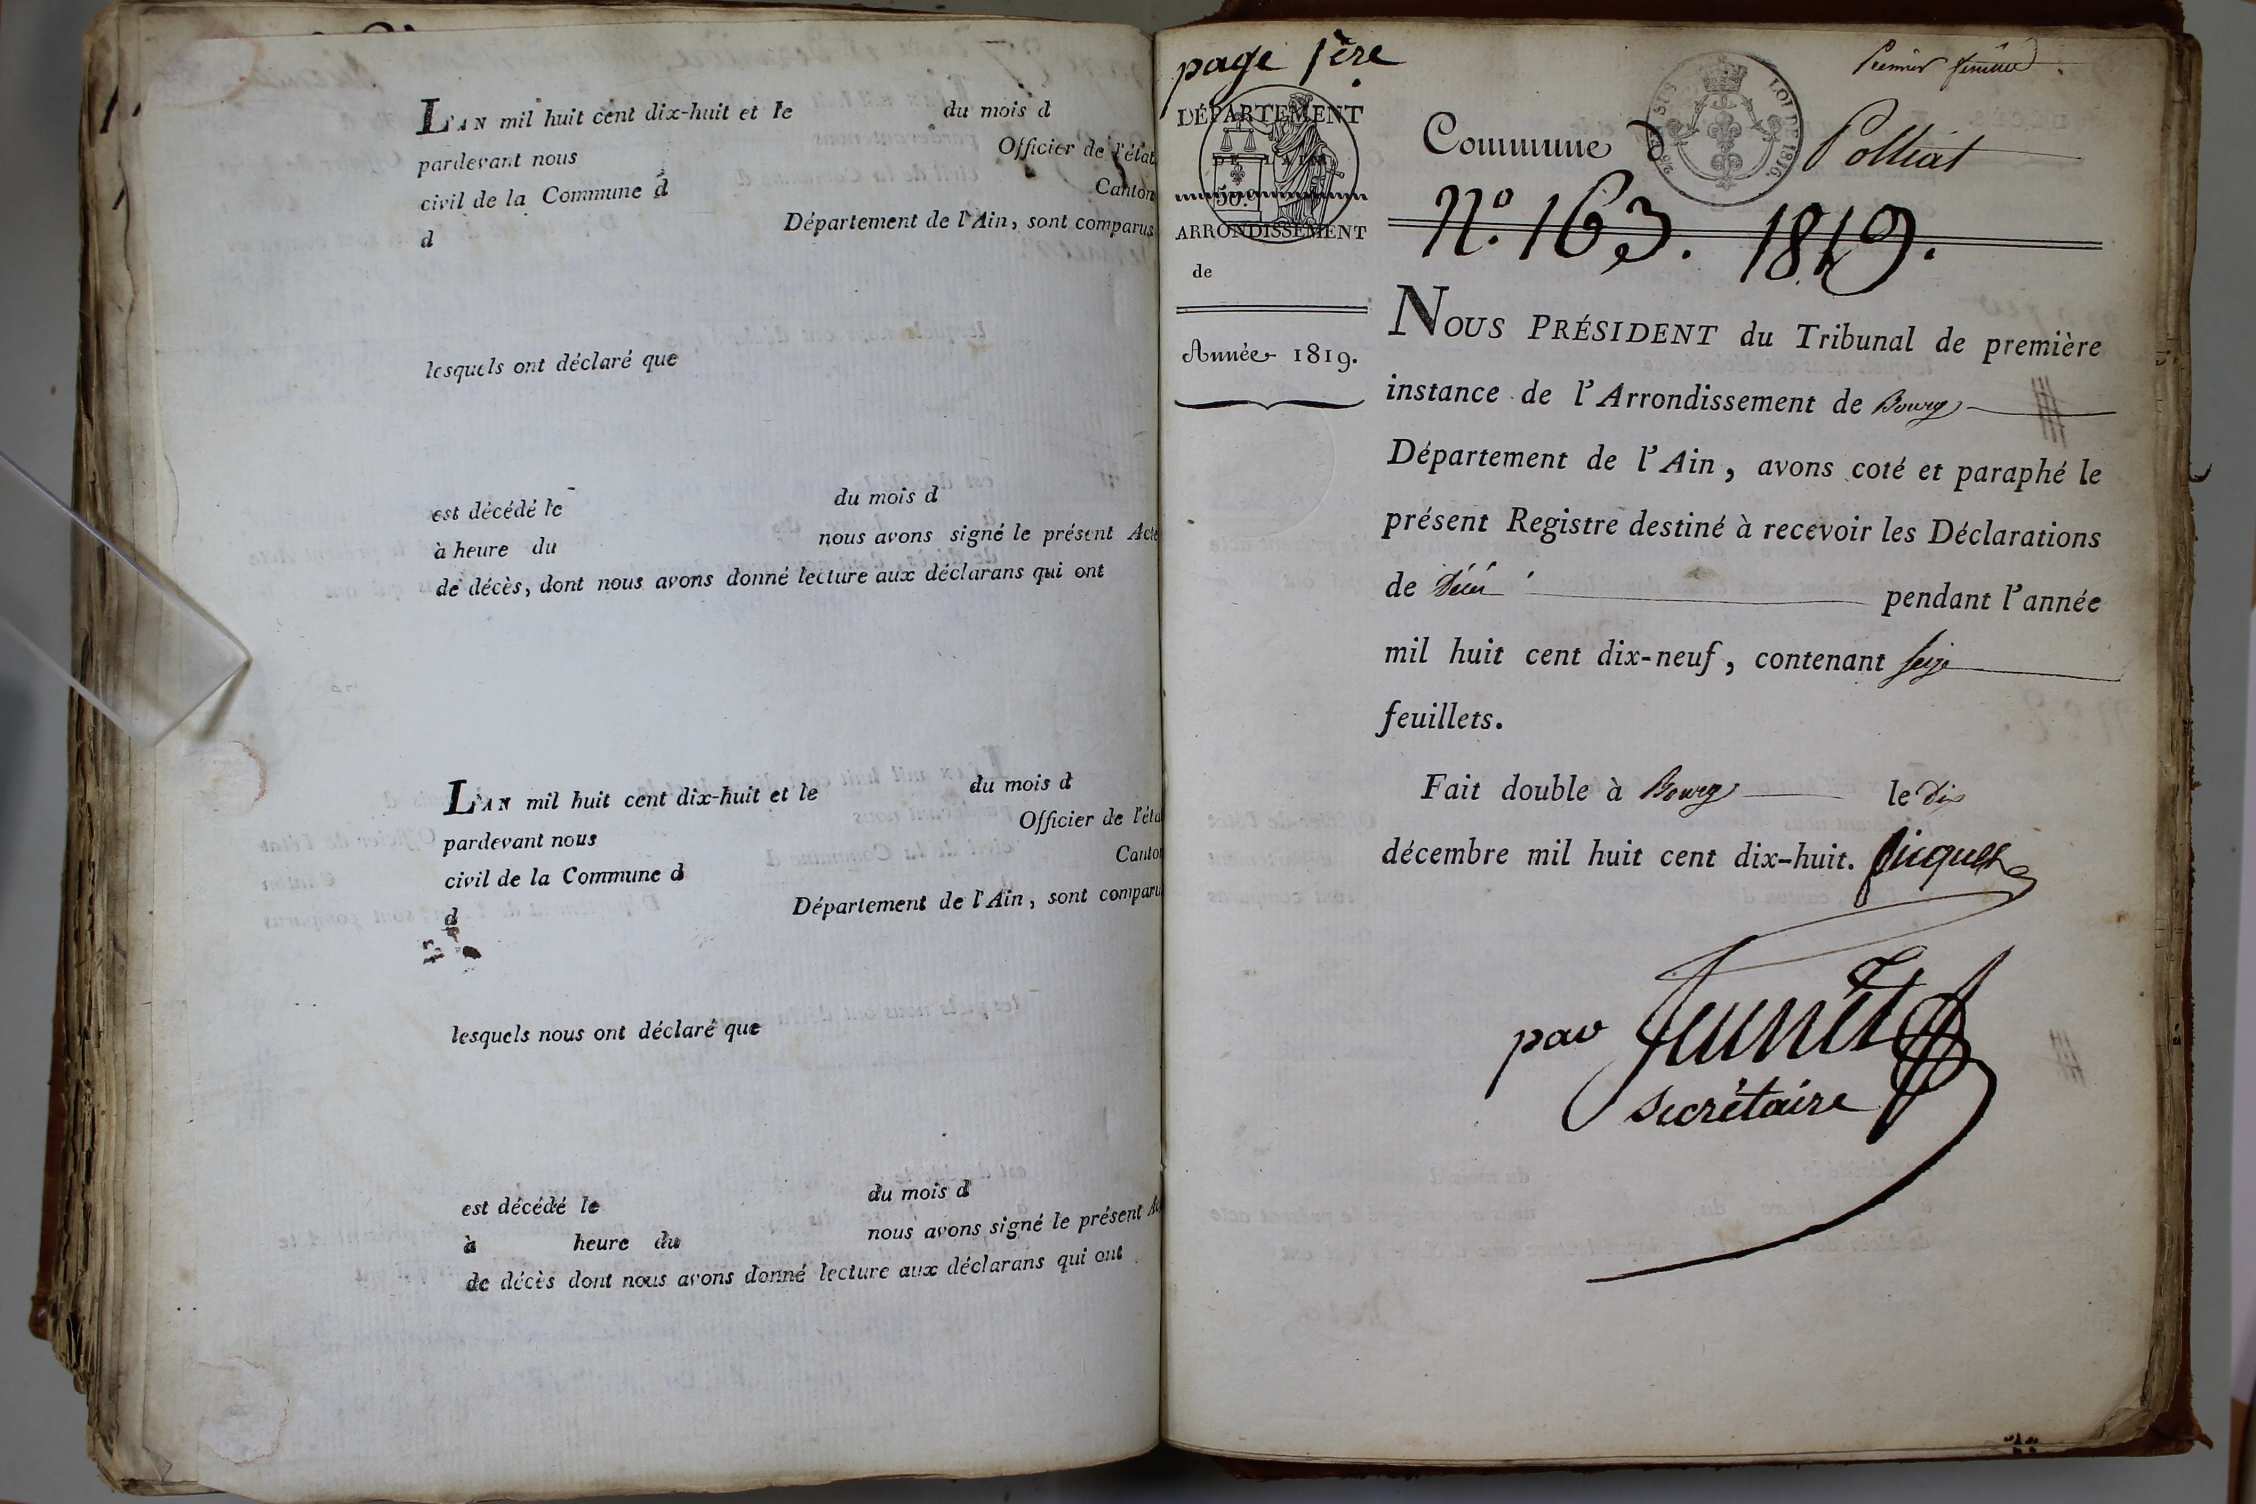 L'AN mil huit cent dix-huit et le du mois d
pardevant nous Officier de l'état
civil de la Commune d Canton
d Département de l'Ain, sont comparus
lesquels ont déclaré que
est décédé le du mois d
à heure du nous avons signé le présent Acte
de décès, dont nous avons donné lecture aux déclarans qui ont
L'AN mil huit cent dix-huit et le du mois d
pardevant nous Officier de l'éta
civil de la Commune d Canton
d Département de l'Ain, sont comparu
lesquels nous ont déclaré que
est décédé le du mois d
à heure du nous avons signé le présent Ac
de décès dont nous avons donné lecture aux déclarans qui ont
page 1ère
Premier feuillet
DÉPARTEMENT
DE L'AIN
50.c
ARRONDISSEMENT
de
Année 1819.
LOI DE 1816.
Commune d Polliat
N.º 163. 1819.
NOUS PRÉSIDENT du Tribunal de première
instance de l'Arrondissement de Bourg
Département de l'Ain, avons coté et paraphé le
présent Registre destiné à recevoir les Déclarations
de Décès pendant l'année
mil huit cent dix-neuf, contenant seize
feuillets.
Fait double à Bourg le dix
décembre mil huit cent dix-huit. Picquet
par
secrétaire